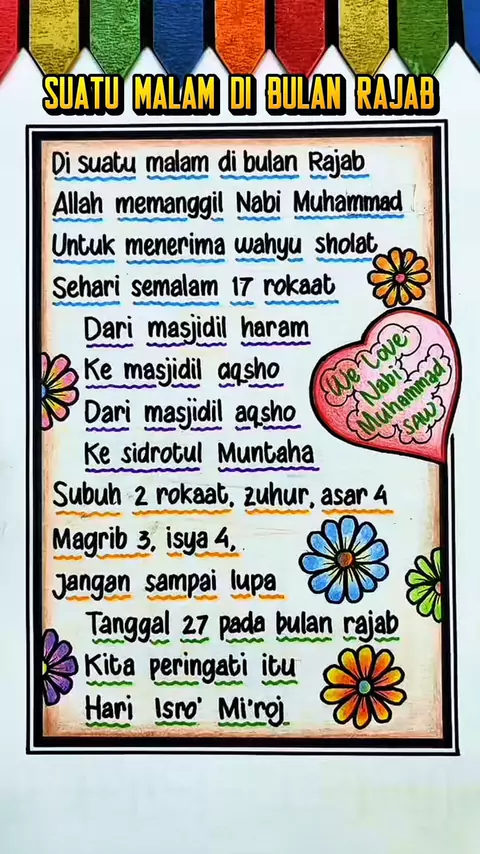 SUATU MALAM DI BULAN RAJAB
Di suatu malam di bulan Rajab
Allah memanggil Nabi Muhammad
Untuk menerima wahyu sholat
Sehari semalam 17 rokaat
Dari masjidil haram
Ke masjidil aqsho
Dari masjidil aqsho
Ke sidrotul Muntaha
Subuh 2 rokaat, zuhur, asar 4
Magrib 3, isya 4,
jangan sampai lupa
Tanggal 27 pada bulan rajab
Kita peringati itu
Hari Isro' Mi'roj
We Love
Nabi
Muhammad
SAW